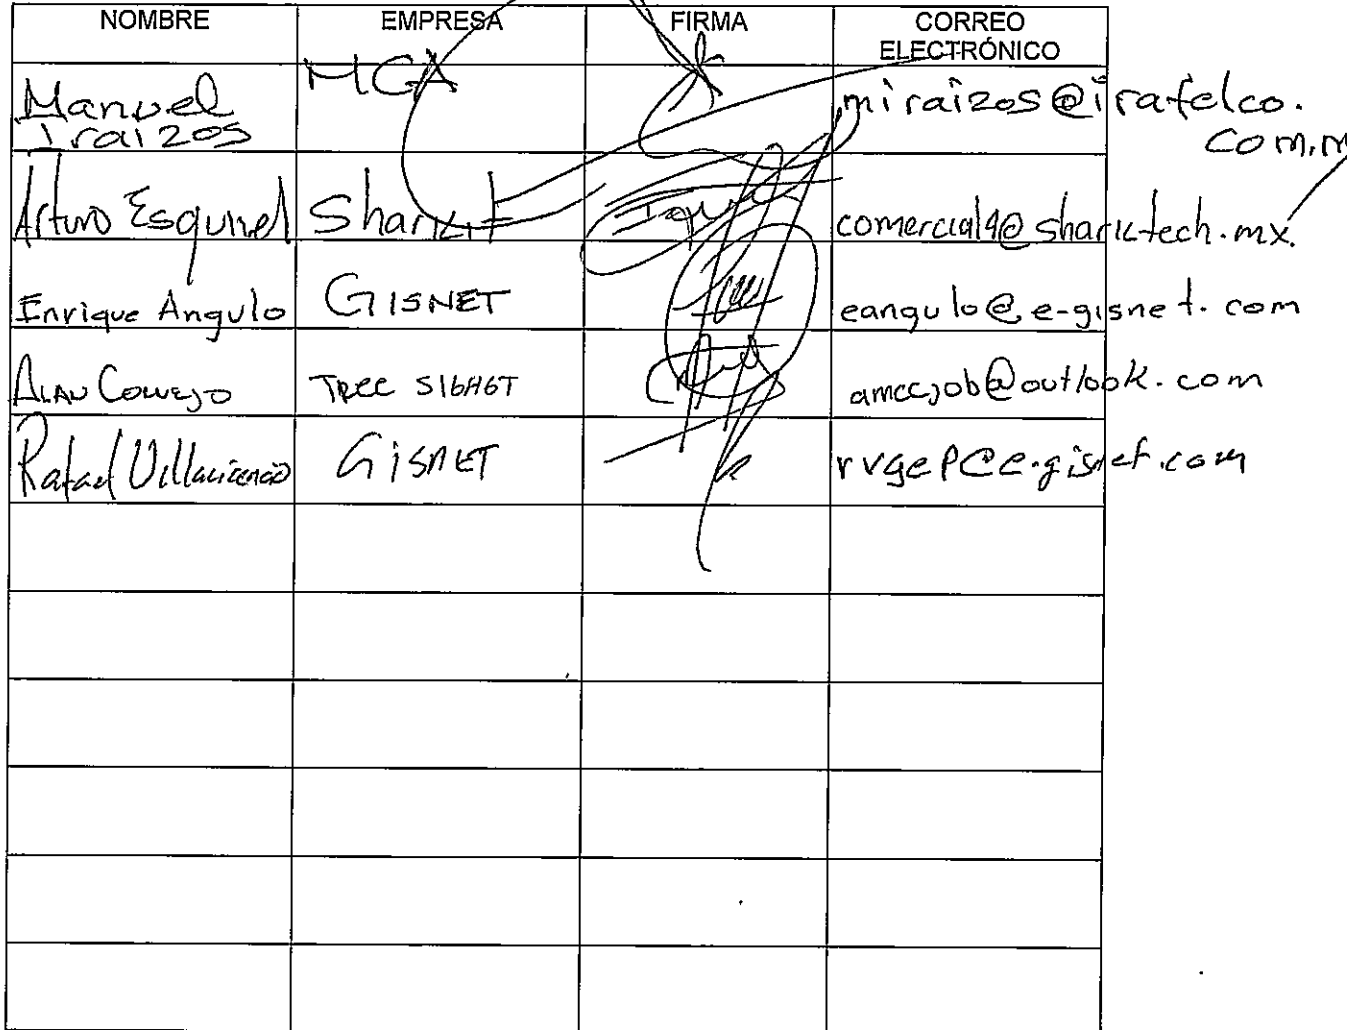 NOMBRE EMPRESA FIRMA CORREO
ELECTRÓNICO
Manuel MGA miraizos@irafelco.
Iraizos com.m
Arturo Esquivel Sharkit comercial4@sharktech.mx
Enrique Angulo GISNET eangulo@e-gisnet.com
ALAN CORNEJO amccjob@outlook.com
Rafael Villavicencio GISNET